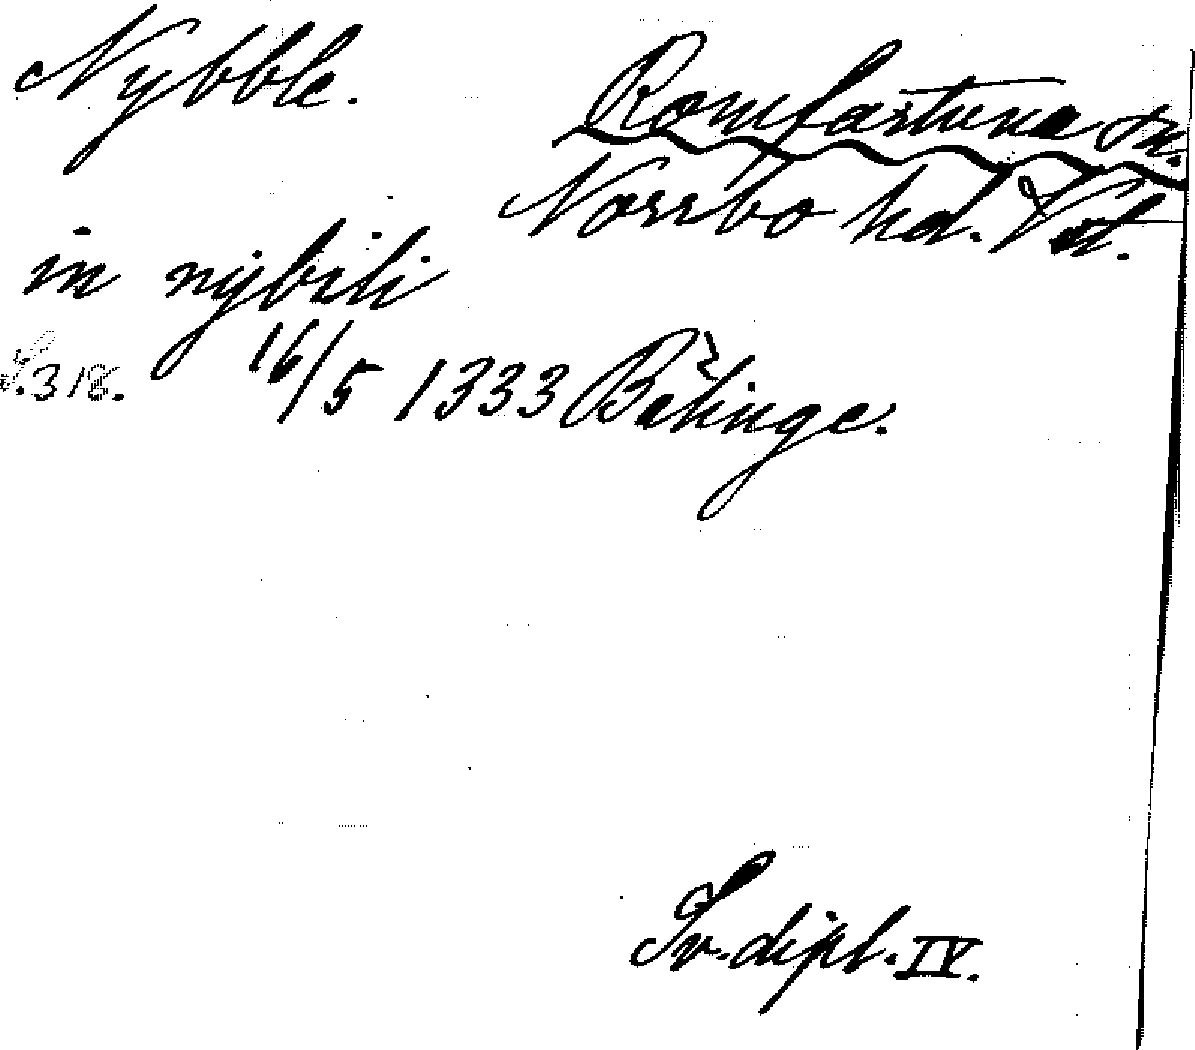 Nybble.
Romfartuna sn.
Norrbo hd. Vstl.
in nybili
S. 318. 16/5 1333 Bälinge.
Sv. dipl. IV.